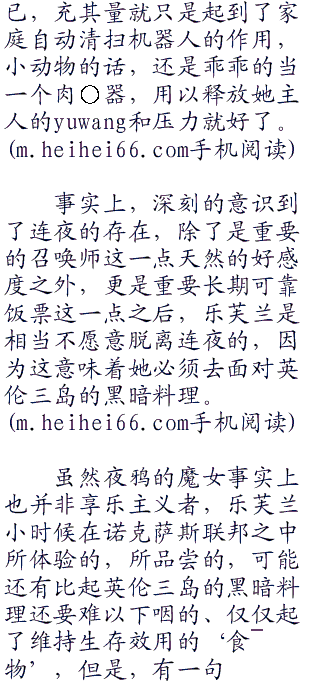 已，充其量就只是起到了家
庭自动清扫机器人的作用，
小动物的话，还是乖乖的当
一个肉○器，用以释放她主
人的yuwang和压力就好了。
(m.heihei66.com手机阅读)
事实上，深刻的意识到
了连夜的存在，除了是重要
的召唤师这一点天然的好感
度之外，更是重要长期可靠
饭票这一点之后，乐芙兰是
相当不愿意脱离连夜的，因
为这意味着她必须去面对英
伦三岛的黑暗料理。
(m.heihei66.com手机阅读)
虽然夜鸦的魔女事实上
也并非享乐主义者，乐芙兰
小时候在诺克萨斯联邦之中
所体验的，所品尝的，可能
还有比起英伦三岛的黑暗料
理还要难以下咽的、仅仅起
了维持生存效用的‘食
物’，但是，有一句